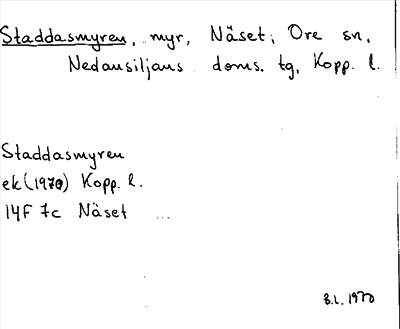 Staddasmyren, myr, Näset, Ore sn,
Nedansiljans doms. tg, Kopp. l.
Staddasmyren
ek (1970) Kopp. l.
14F 7c Näset ...
B.L. 1970